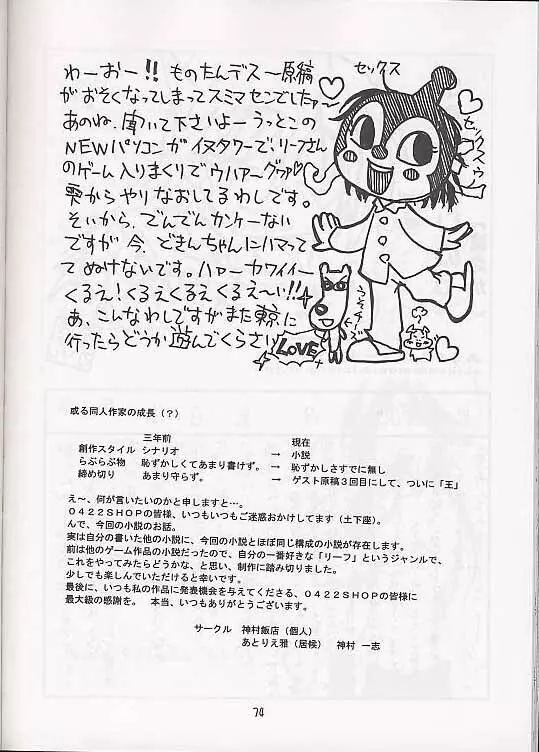 わーおー!! ものたんデスー原稿
がおそくなってしまってスミマセンでしたァ〜
あのね、聞いて下さいよーうっとこの
NEWパソコンがイヌタワーで、リーフさん
のゲーム入りまくりでウハァ〜グヮァ♡
雫からやりなおしてるわしです。
そいから、でんでんカンケーない
ですが今、どきんちゃんにハマって
てぬけないです。ハァーカワイイー
くるえ!くるえくるえくるえ〜い!!
あ、こんなわしですがまた東京に
行ったらどうか遊んでくらさい
セックス
セックスゥ
LOVE
或る同人作家の成長(?)
三年前 現在
創作スタイル シナリオ → 小説
らぶらぶ物 恥ずかしくてあまり書けず。 → 恥ずかしさすでに無し
締め切り あまり守らず。 → ゲスト原稿3回目にして、ついに「王」
え〜、何が言いたいのかと申しますと…。
0422SHOPの皆様、いつもいつもご迷惑おかけしてます(土下座)。
んで、今回の小説のお話。
実は自分の書いた他の小説に、今回の小説とほぼ同じ構成の小説が存在します。
前は他のゲーム作品の小説だったので、自分の一番好きな「リーフ」というジャンルで、
これをやってみたらどうかな、と思い、制作に踏み切りました。
少しでも楽しんでいただけると幸いです。
最後に、いつも私の作品に発表機会を与えてくださる、0422SHOPの皆様に
最大級の感謝を。 本当、いつもありがとうございます。
サークル 神村飯店(個人)
あとりえ雅(居候) 神村 一志
74